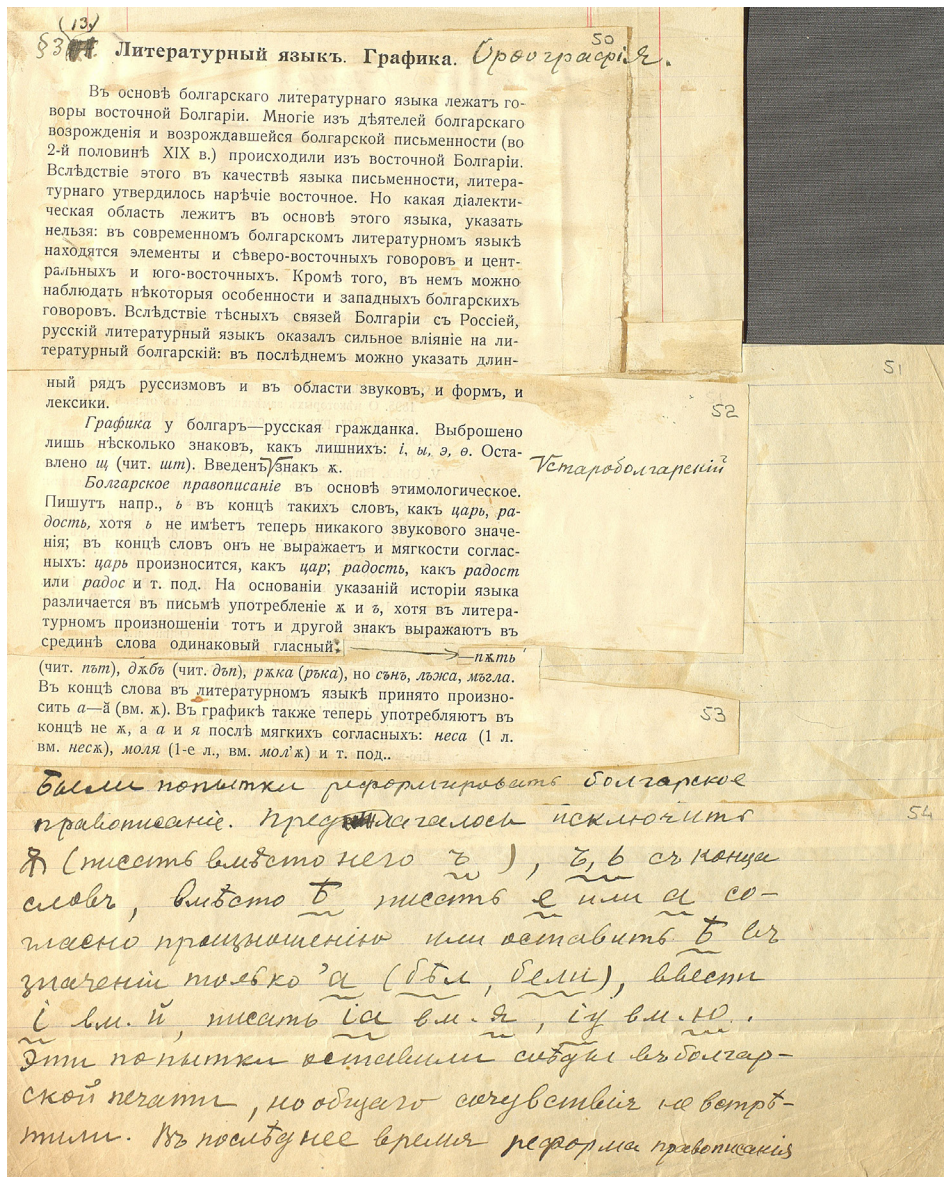 (13.)
§3 Литературный языкъ. Графика. Орѳографія.
50
Въ основѣ болгарскаго литературнаго языка лежатъ го-
воры восточной Болгаріи. Многіе изъ дѣятелей болгарскаго
возрожденія и возрождавшейся болгарской письменности (во
2-й половинѣ XIX в.) происходили изъ восточной Болгаріи.
Вслѣдствіе этого въ качествѣ языка письменности, литера-
турнаго утвердилось нарѣчіе восточное. Но какая діалекти-
ческая область лежитъ въ основѣ этого языка, указать
нельзя: въ современномъ болгарскомъ литературномъ языкѣ
находятся элементы и сѣверо-восточныхъ говоровъ и цент-
ральныхъ и юго-восточныхъ. Кромѣ того, въ немъ можно
наблюдать нѣкоторыя особенности и западныхъ болгарскихъ
говоровъ. Вслѣдствіе тѣсныхъ связей Болгаріи съ Россіей,
русскій литературный языкъ оказалъ сильное вліяніе на ли-
тературный болгарскій: въ послѣднемъ можно указать длин-
51
ный рядъ руссизмовъ и въ области звуковъ, и формъ, и
лексики.
52
Графика у болгаръ—русская гражданка. Выброшено
лишь нѣсколько знаковъ, какъ лишнихъ: і, ы, э, ѳ. Оста-
влено щ (чит. шт). Введенъ знакъ ѫ.
старобoлгарскій
Болгарское правописаніе въ основѣ этимологическое.
Пишутъ напр., ь въ концѣ такихъ словъ, какъ царь, ра-
дость, хотя ь не имѣетъ теперь никакого звукового значе-
нія; въ концѣ словъ онъ не выражаетъ и мягкости соглас-
ныхъ: царь произносится, какъ цар; радость, какъ радост
или радос и т. под. На основаніи указаній исторіи языка
различается въ письмѣ употребленіе ѫ и ъ, хотя въ литера-
турномъ произношеніи тотъ и другой знакъ выражаютъ въ
срединѣ слова одинаковый гласный: —пѫть
(чит. път), дѫбъ (чит. дъп), рѫка (ръка), но сънь, лъжа, мъгла.
Въ концѣ слова въ литературномъ языкѣ принято произно-
сить а—ӑ (вм. ѫ). Въ графикѣ также теперь употребляютъ въ
концѣ не ѫ, а а и я послѣ мягкихъ согласныхъ: неса (1 л.
вм. несѫ), моля (1-е л., вм. мол'ѫ) и т. под..
53
Были попытки реформировать болгарское
правописаніе. Предлагалось исключить
54
ѫ (писать вмѣсто него ъ), ъ, ь съ конца
словъ, вмѣсто ѣ писать е или а со-
гласно произношенію или оставить ѣ въ
значеніи только 'а (бѣл, бели), ввести
і вм. й, писать іа вм. я, іу вм. ю.
Эти попытки оставили слѣды въ болгар-
ской печати, но общаго сочувствія не встрѣ-
тили. Въ послѣднее время реформа правописанія